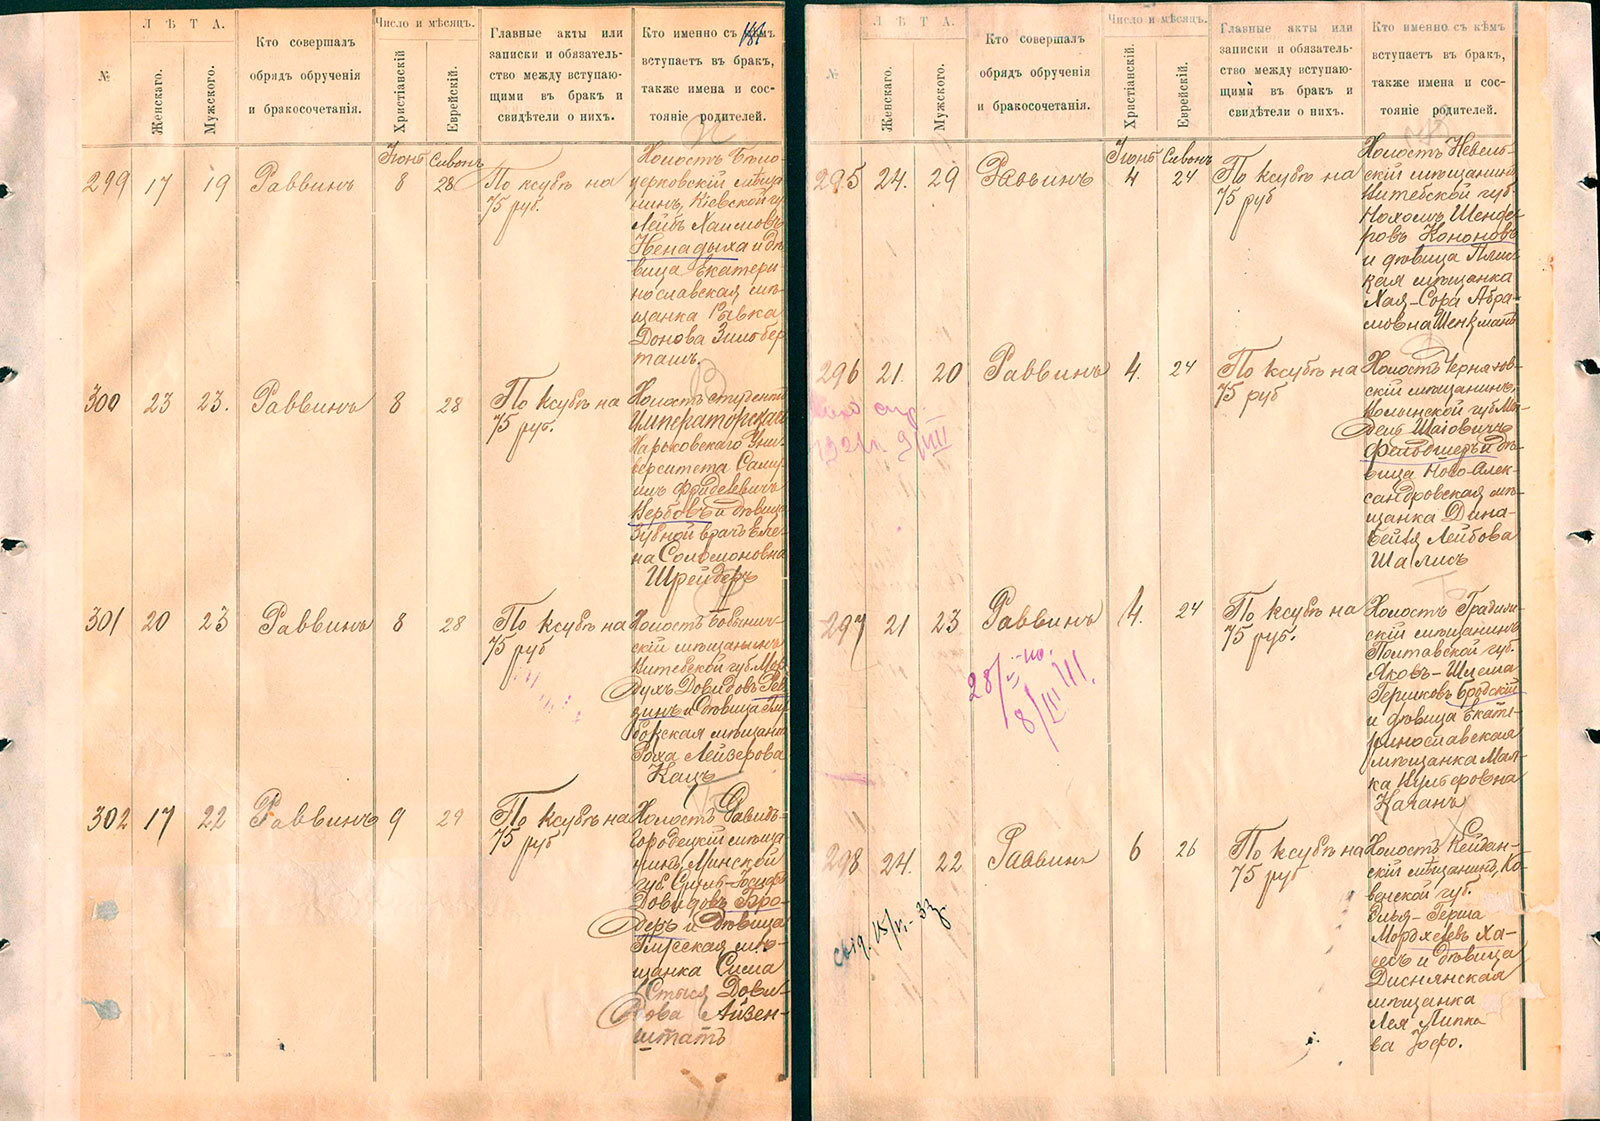 Л Ѣ Т А.
Число и мѣсяцъ.
№
Женскаго.
Мужского.
Кто совершалъ
обрядъ обрученія
и бракосочетанія.
Христіанскій
Еврейскій.
Главные акты или
записки и обязатель-
ство между вступаю-
щими въ бракъ и
свидѣтели о нихъ.
Кто именно съ кѣмъ
вступаетъ въ бракъ,
также имена и сос-
тояніе родителей.
181
Іюнь Сивонъ
299 17 19 Раввинъ 8 28 По ксубѣ на
75 руб.
Холостъ Бѣло-
церковскій мѣща
нинъ, Кіевской гу
Лейбъ Хаимовъ
Ненадыха и дѣ
вица Екатери
нославская мѣ
щанка Рывка
Донова Зильбер
ташъ.
300 23 23. Раввинъ 8 28 По ксубѣ на
75 руб.
Холостъ студентъ
Императорскаго
Харьковскаго Уни
верситета Саму
илъ
Вербовъ и дѣвица
Зубной врачъ Еле
на Соломоновна
Шрейдеръ
301 20 23 Раввинъ 8 28 По ксубѣ на
75 руб
Холостъ
скій мѣщанинъ
Витебской губ. Мор
духъ Довидовъ Рев
зинъ и дѣвица
мѣщанк
Роха Лейзерова
Кацъ
302 17 22 Раввинъ 9 29 По ксубѣ на
75 руб
Холостъ Давидъ-
Городецкій мѣща
нинъ, Минской
губ.
Довидовъ Бро-
деръ и дѣвица
мѣ-
щанка Сима
Дови-
дова Айзен-
штатъ
Л Ѣ Т А.
Число и мѣсяцъ.
№
Женскаго.
Мужского.
Кто совершалъ
обрядъ обрученія
и бракосочетанія.
Христіанскій
Еврейскій.
Главные акты или
записки и обязатель-
ство между вступаю-
щими въ бракъ и
свидѣтели о нихъ.
Кто именно съ кѣмъ
вступаетъ въ бракъ,
также имена и сос-
тояніе родителей.
Іюнь Сивонъ
295 24. 29 Раввинъ 4 24 По ксубѣ на
75 руб
Холостъ Невель-
скій мѣщанинъ
Витебской губ.
Нохомъ Шенде-
ровъ Кононовъ
и дѣвица
мѣщанка
Хая-Сора Абра-
мовна Шенкманъ
296 21. 20 Раввинъ 4. 24 По ксубѣ на
75 руб
Холостъ Черняхов-
скій мѣщанинъ,
Волынской губ. Мен
дель Шаіовичъ
Фельдшеръ и дѣ-
вица Ново-Алек-
сандровская мѣ-
щанка Дина-
Бейля Лейбова
Шалисъ
297 21 23 Раввинъ 4. 24 По ксубѣ на
75 руб.
28/
8/III III.
Холостъ Градиж-
скій мѣщанинъ
Полтавской губ.
Яковъ-Шлема
Гершковъ Бродскій
и дѣвица Екате-
ринославская
мѣщанка Мал-
ка Вульфовна
Каганъ
298 24. 22 Раввинъ 6 26 По ксубѣ на
75 руб
Холостъ Кейдан-
скій мѣщанинъ, Ко-
венской губ.
Элья-Герша
Мордхелевъ Ха-
есъ и дѣвица
Диснянская
мѣщанка
Лея Липка
ва Іофо.